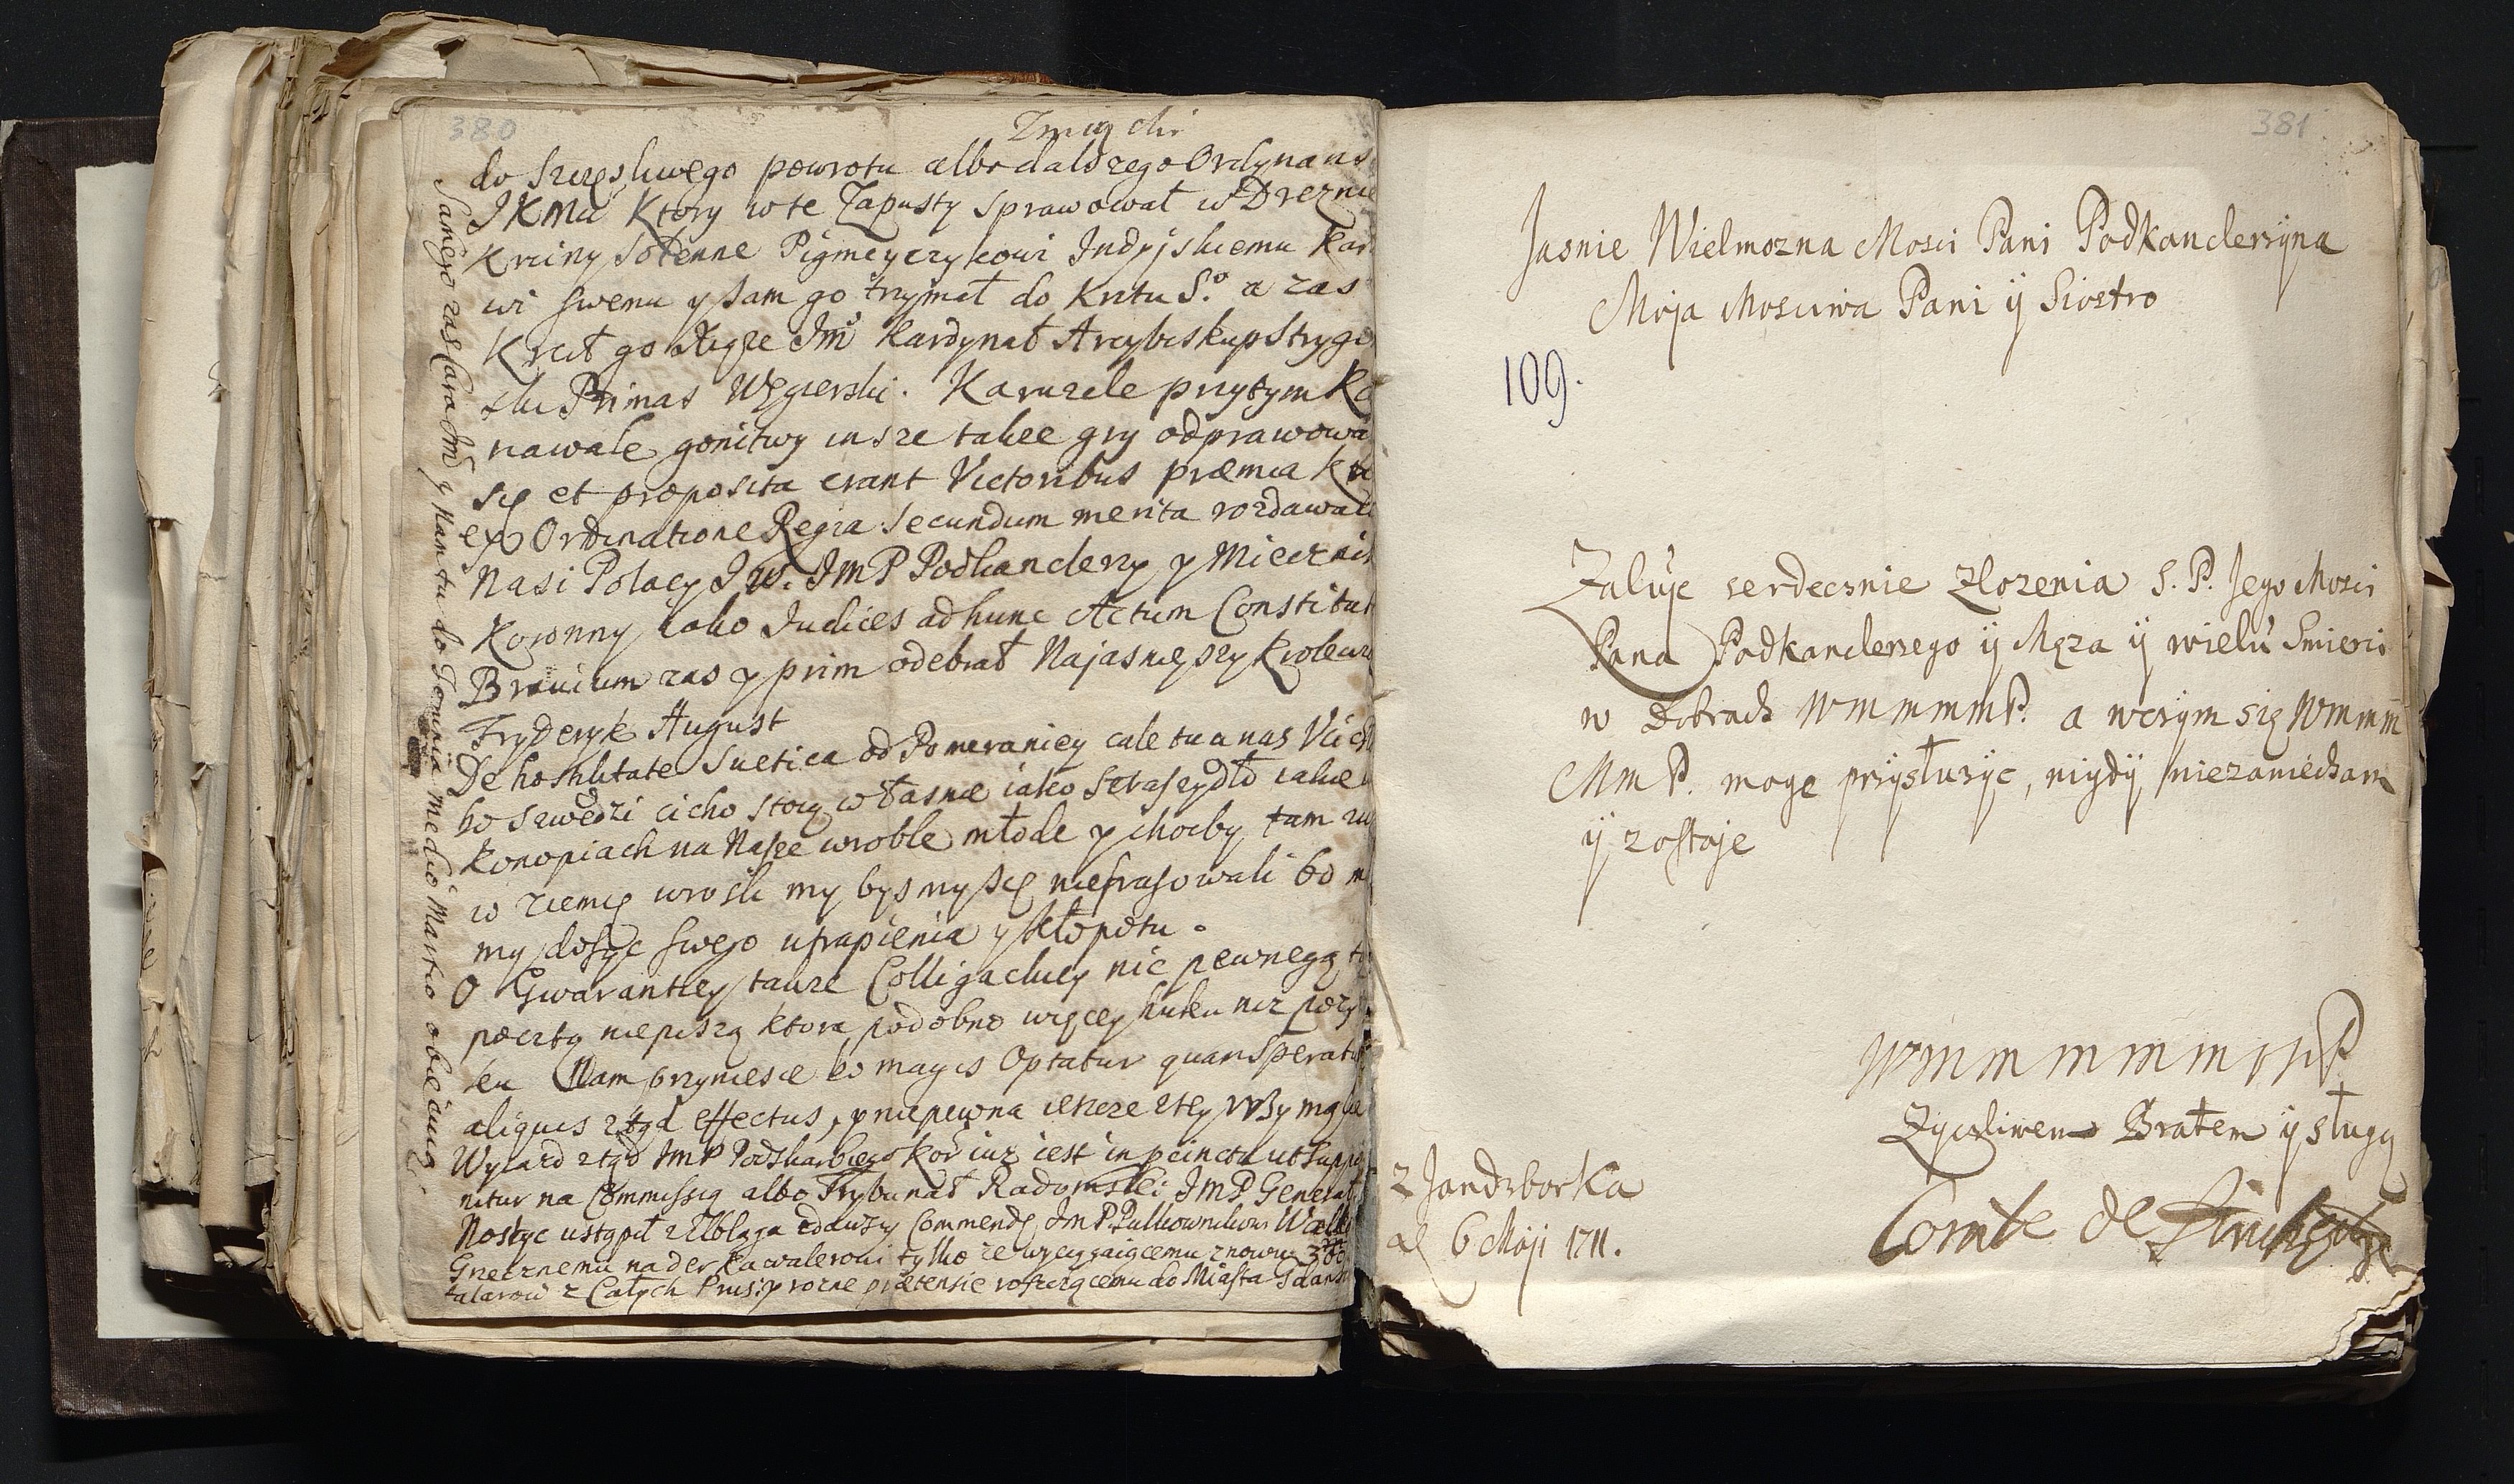 380
do szczęsliwego powrotu albo dalszego Ordynans
JKMci Ktory w te Zapusty sprawował w Dreznie
Krciny Solenne Pigmeyczykowi Indyjskiemu Kar
wi swemu y sam go trzymał do Krztu S.º a zas
Krcił go Xiąze Jm Kardynał Arcybiskup Strygo
ski Primas Węgierski. Karuzele przytym Ka
nawale gonitwy insze takee gry odprawowa
się et proposita erant Victoribus præmia
ex Ordinatione Regia secundum merita rozdawali
Nasi Polacy J W. JMP Podkanclerzy y Miecznik
Koronny iako Judices ad hunc Actum Constitut
Bravium zas y prim odebrał Najasnieyszy Krolewi
Fryderyk August
De hostilitate Suetica od Pomeraniey cale tu u nas
bo Szwedzi cicho stoią własnie iako Straszydło iakie
Konopiach na Nasze wroble młode y choćby tam
w ziemię wrośli my bysmy się niefrasowali bo m
my dosyć swego utrapienia y kłopotu.
O Gwarantiey takze Colligackiey nic pewnego
pocztą niepiszą ktora podobno więcey huku niz pozy
ku Nam przyniesie bo magis Optatur quam Speratur
aliquis ztąd effectus, y niepewna ieszcze
Wyiazd ztąd JmP Podskarbiego Kor iuz iest in peincto ut suppo
nitur na Commissią albo Trybunał Radomski JmP Generał
Nostyc ustąpił z Elbląga zdawszy Commendę JmP. Pułkownikowi
Grzecznemu nader Kawalerowi tylko ze wyciągaiącemu znowu
talarow z Całych Prus: y rozne prætensie roszczącemu do Miasta Gdans
Samego zas Cara Jm y Han tu do Jomoia medio Martio obiecuią
381
Jasnie Wielmozna Mosci Pani Podkanclerzyna
Moja Mosciwa Pani ÿ Siostro
109.
Załuje serdecznie Zlozenia S. P. Jego Mosci
Pana Podkanclerzego ÿ Męza ÿ wielu Smierci
w Dobrach WmmmmP. a wczym się Wmmm
MmP. moge przÿsłuzÿc, nigdÿ niezaniecham
ÿ zostaje
Zyczliwem Bratem ÿ sługą
z Jandzborka
d 6 Maji 1711.
Comte de